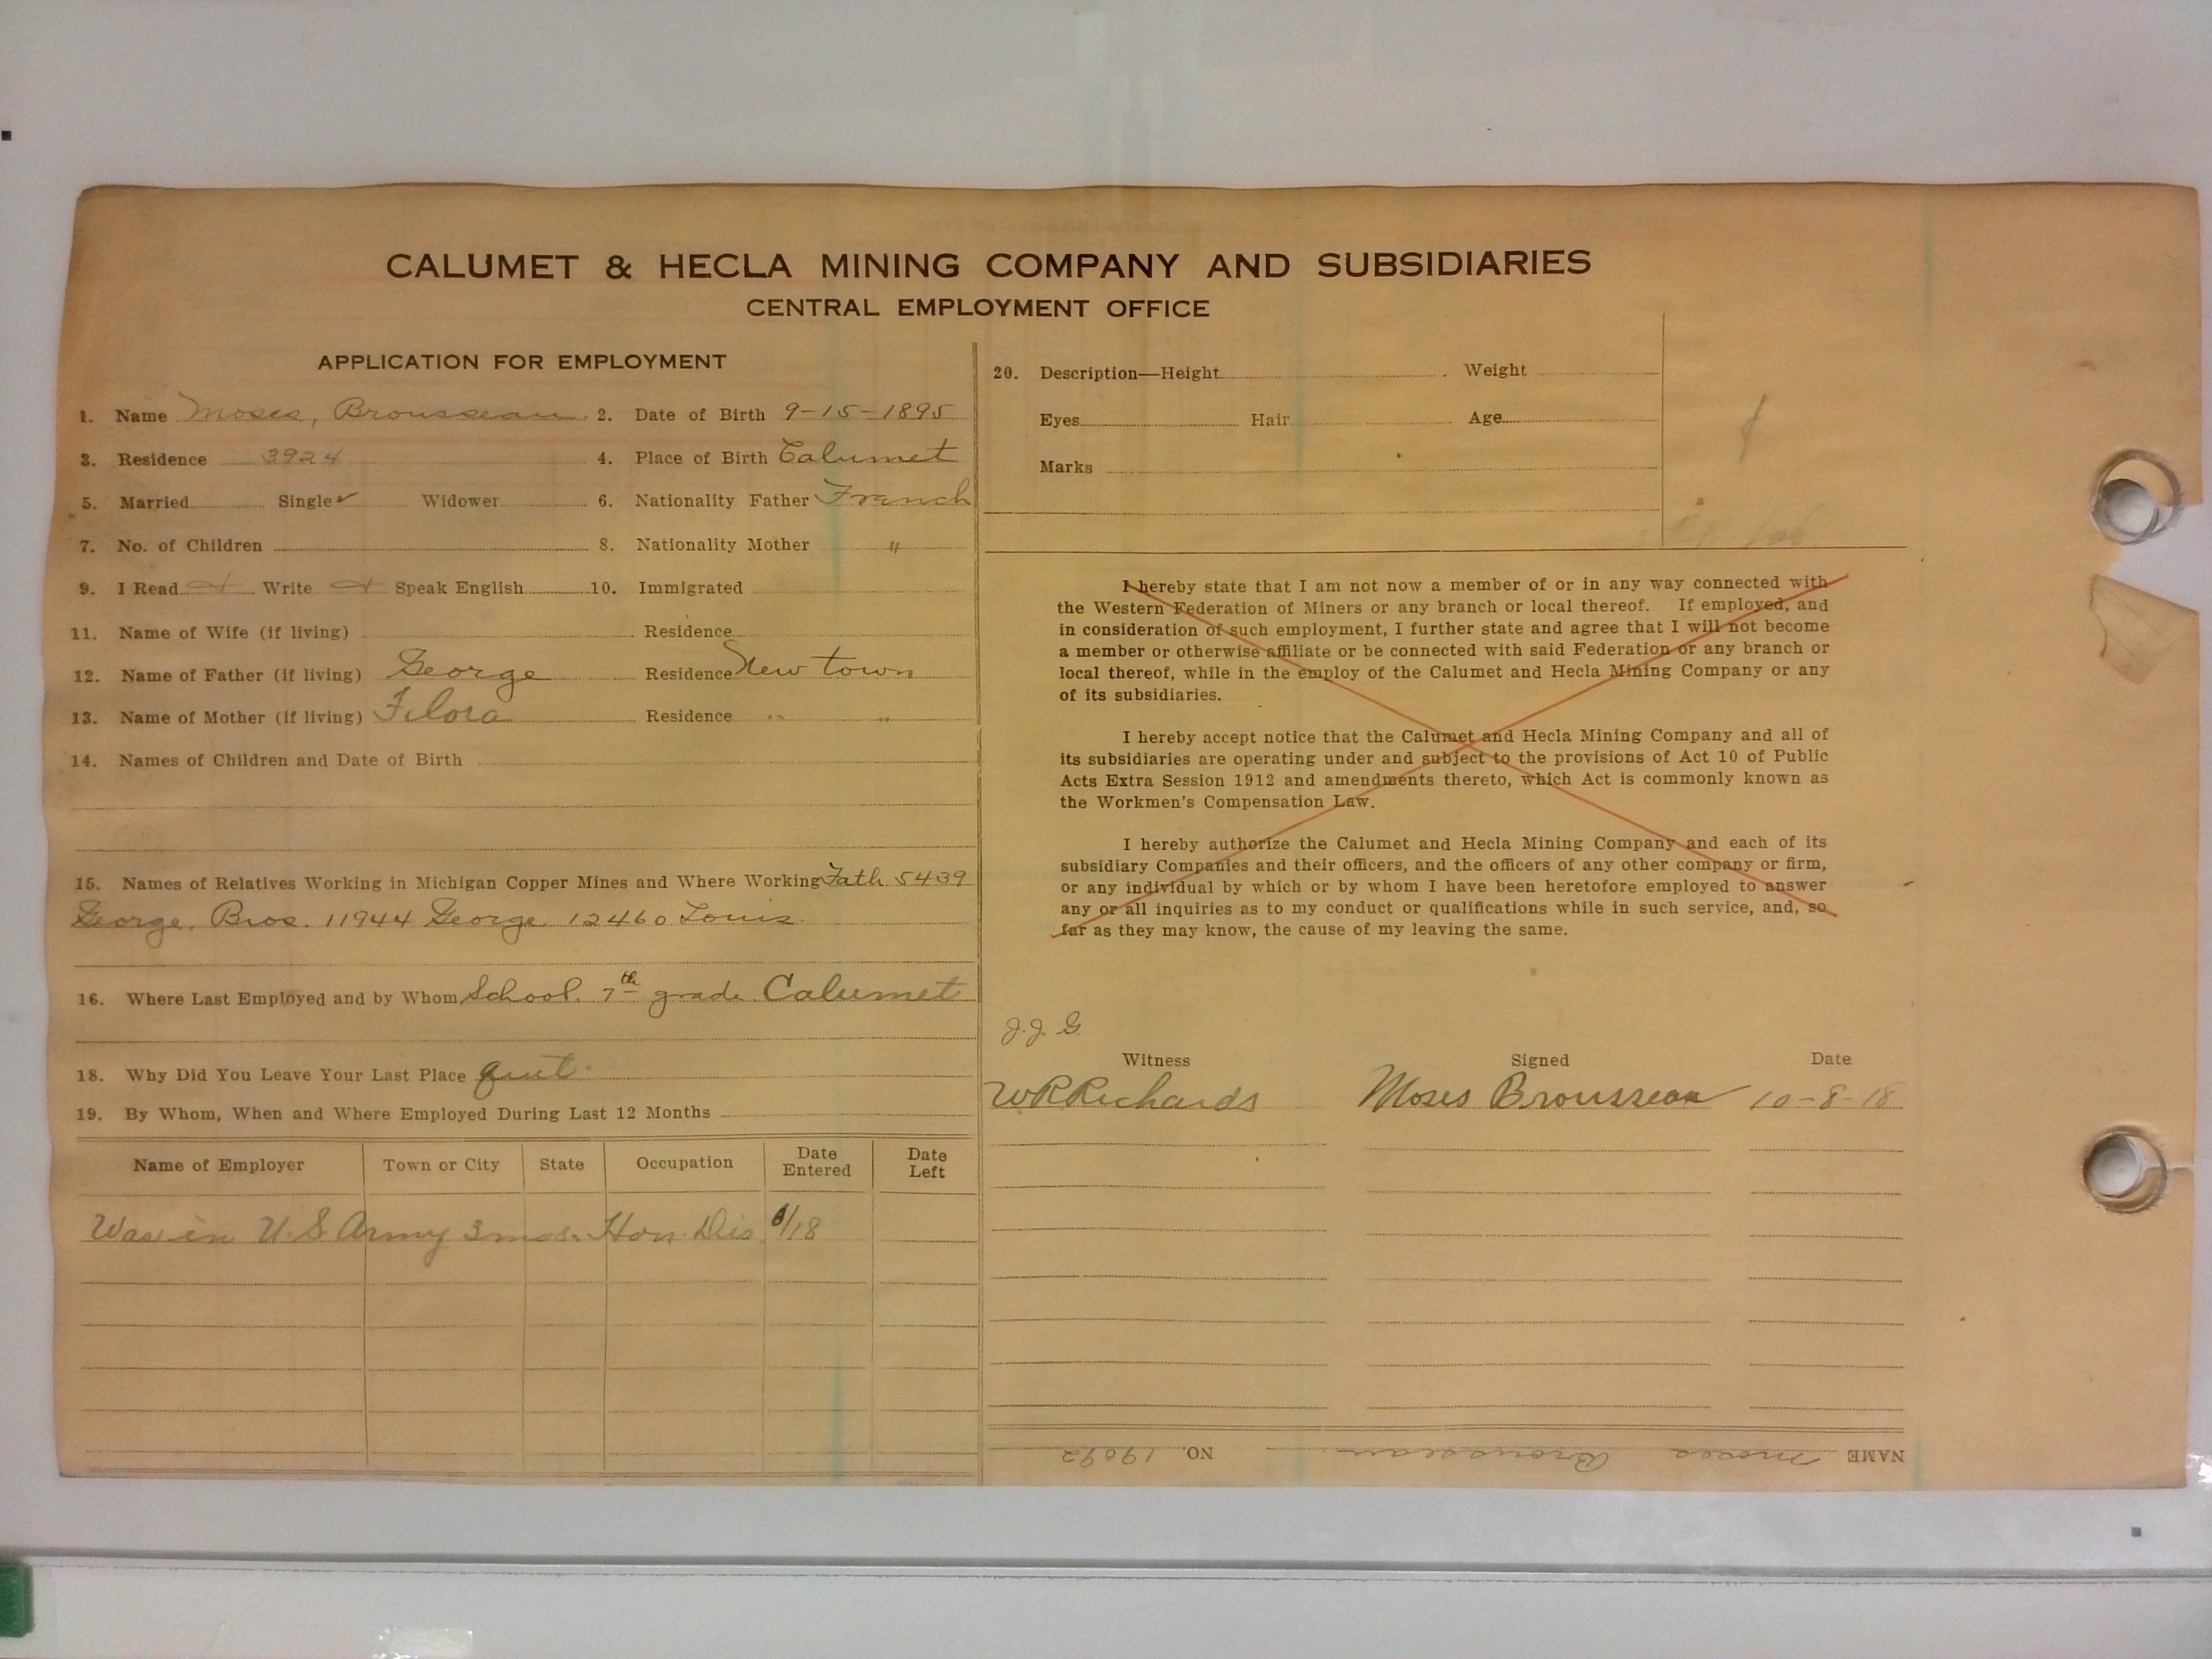 CALUMET & HECLA MINING COMPANY AND SUBSIDIARIES
CENTRAL EMPLOYMENT OFFICE
APPLICATION FOR EMPLOYMENT
1. Name Moses, Brousseau 2. Date of Birth 9-15-1895
3. Residence 3924 4. Place of Birth Calumet
5. Married Single ✓ Widower 6. Nationality Father French
7. No. of Children 8. Nationality Mother "
9. I Read Write Speak English 10. Immigrated
11. Name of Wife (if living) Residence
12. Name of Father (if living) George Residence New town
13. Name of Mother (if living) Flora Residence " "
14. Names of Children and Date of Birth
15. Names of Relatives Working in Michigan Copper Mines and Where Working Fath 5439
George. Bros. 11944 George 12460 Louis.
16. Where Last Employed and by Whom School. 7th grade. Calumet
18. Why Did You Leave Your Last Place quit.
19. By Whom, When and Where Employed During Last 12 Months
Name of Employer Town or City State Occupation Date Entered Date Left
Was in U.S Army 3 mos. Hon. Dis. 6/18
20. Description—Height Weight
Eyes Hair Age
Marks
I hereby state that I am not now a member of or in any way connected with
the Western Federation of Miners or any branch or local thereof. If employed, and
in consideration of such employment, I further state and agree that I will not become
a member or otherwise affiliate or be connected with said Federation or any branch or
local thereof, while in the employ of the Calumet and Hecla Mining Company or any
of its subsidiaries.
I hereby accept notice that the Calumet and Hecla Mining Company and all of
its subsidiaries are operating under and subject to the provisions of Act 10 of Public
Acts Extra Session 1912 and amendments thereto, which Act is commonly known as
the Workmen's Compensation Law.
I hereby authorize the Calumet and Hecla Mining Company and each of its
subsidiary Companies and their officers, and the officers of any other company or firm,
or any individual by which or by whom I have been heretofore employed to answer
any or all inquiries as to my conduct or qualifications while in such service, and, so
far as they may know, the cause of my leaving the same.
J.J.G.
Witness Signed Date
W R Richards Moses Brousseau 10-8-18
NAME Moses Brousseau. NO. 19092